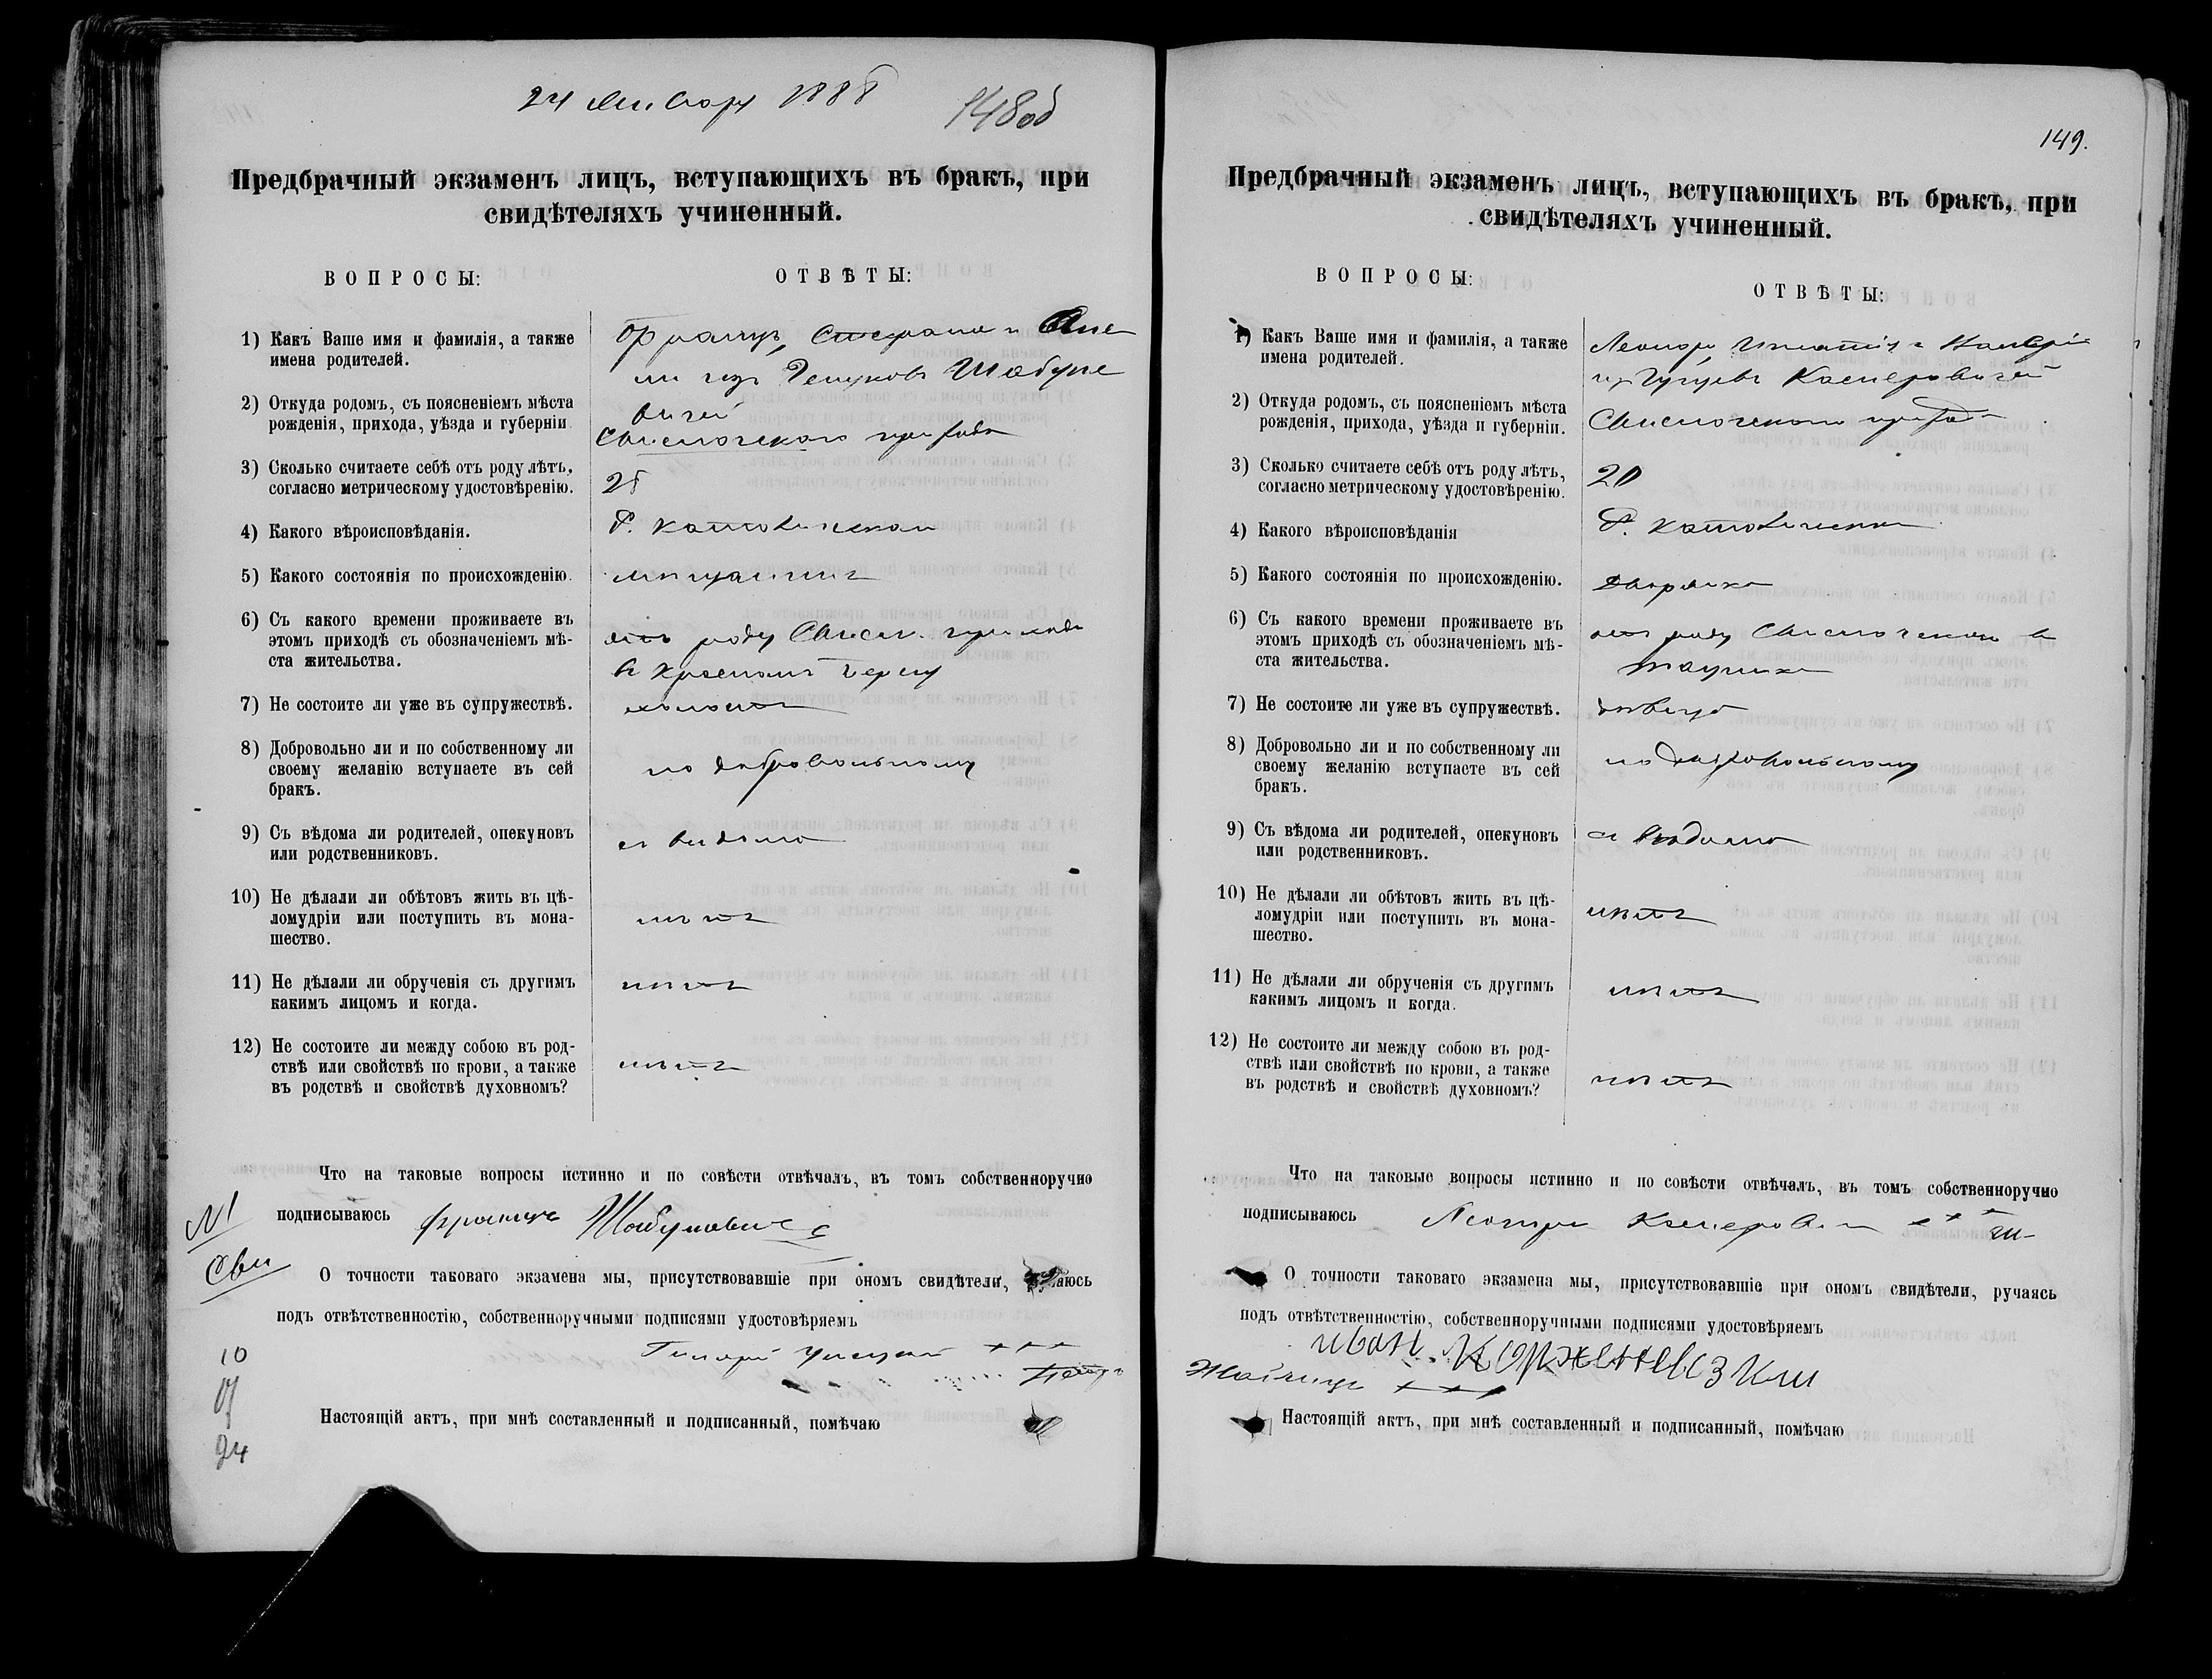 24 Января 1888
148об
Предбрачный экзаменъ лицъ, вступающихъ въ бракъ, при
свидѣтеляхъ учиненный.
ВОПРОСЫ:
ОТВѢТЫ:
1) Какъ Ваше имя и фамилія, а также
имена родителей.
Францъ, Стефана и
Шабуне
вичей
2) Откуда родомъ, съ поясненіемъ мѣста
рожденія, прихода, уѣзда и губерніи
Свислочскаго прихода
3) Сколько считаете себѣ отъ роду лѣтъ,
согласно метрическому удостовѣренію.
4) Какого вѣроисповѣданія.
Р. Католическаго
5) Какого состоянія по происхожденію.
мѣщанинъ
6) Съ какого времени проживаете въ
этомъ приходѣ съ обозначеніемъ мѣ-
ста жительства.
отъ роду Свисл. прихода
въ Красномъ Берегу
7) Не состоите ли уже въ супружествѣ.
холостъ
8) Добровольно ли и по собственному ли
своему желанію вступаете въ сей
бракъ.
по добровольному
9) Съ вѣдома ли родителей, опекуновъ
или родственниковъ.
съ видома
10) Не дѣлали ли обѣтовъ жить въ цѣ-
ломудріи или поступить въ мона-
шество.
нѣтъ
11) Не дѣлали ли обрученія съ другимъ
какимъ лицомъ и когда.
нѣтъ
12) Не состоите ли между собою въ род-
ствѣ или свойствѣ по крови, а также
въ родствѣ и свойствѣ духовномъ?
нѣтъ
Что на таковые вопросы истинно и по совѣсти отвѣчалъ, въ томъ собственноручно
подписываюсь Францъ Шабуневичъ
N1
Сви
О точности таковаго экзамена мы, присутствовавшіе при ономъ свидѣтели, ручаюсь
подъ отвѣтственностію, собственноручными подписями удостовѣряемъ
+++
Петръ
10
24
Настоящій актъ, при мнѣ составленный и подписанный, помѣчаю
149.
Предбрачный экзаменъ лицъ, вступающихъ въ бракъ, при
свидѣтеляхъ учиненный.
ВОПРОСЫ:
ОТВѢТЫ:
1) Какъ Ваше имя и фамилія, а также
имена родителей.
Леонора, Игнатія и
Касперовичей
2) Откуда родомъ, съ поясненіемъ мѣста
рожденія, прихода, уѣзда и губерніи.
Свислочскаго прихода
3) Сколько считаете себѣ отъ роду лѣтъ,
согласно метрическому удостовѣренію.
20
4) Какого вѣроисповѣданія
Р. Католическа
5) Какого состоянія по происхожденію.
дворянка
6) Съ какого времени проживаете въ
этомъ приходѣ съ обозначеніемъ мѣ-
ста жительства.
отъ роду Свислочскаго в
7) Не состоите ли уже въ супружествѣ.
дѣвица
8) Добровольно ли и по собственному ли
своему желанію вступаете въ сей
бракъ.
по добровольному
9) Съ вѣдома ли родителей, опекуновъ
или родственниковъ.
съ вѣдома
10) Не дѣлали ли обѣтовъ жить въ цѣ-
ломудріи или поступить въ мона-
шество.
нѣтъ
11) Не дѣлали ли обрученія съ другимъ
какимъ лицомъ и когда.
нѣтъ
12) Не состоите ли между собою въ род-
ствѣ или свойствѣ по крови, а также
въ родствѣ и свойствѣ духовномъ?
нѣтъ
Что на таковые вопросы истинно и по совѣсти отвѣчалъ, въ томъ собственноручно
подписываюсь Леонора Касперович +++
О точности таковаго экзамена мы, присутствовавшіе при ономъ свидѣтели, ручаясь
подъ отвѣтственностію, собственноручными подписями удостовѣряемъ
иван Корженевзкии
+++
Настоящій актъ, при мнѣ составленный и подписанный, помѣчаю